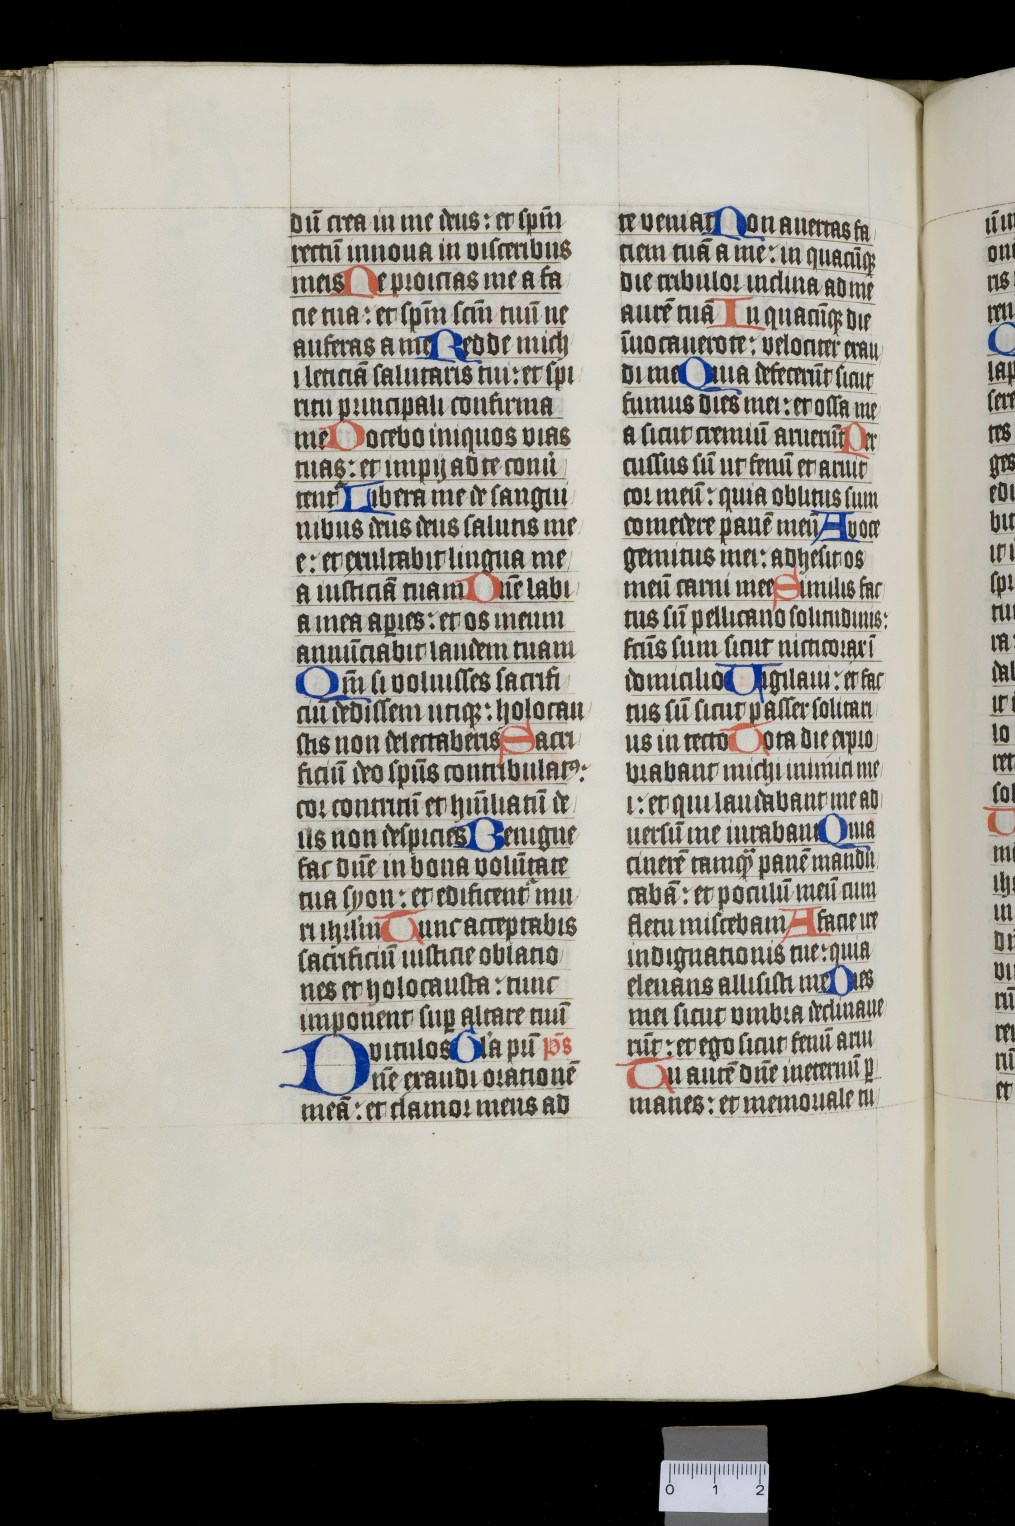 dū crea in me deus : et spm̄
rectū innova in visceribus
meis Ne proicias me a fa
cie tua : et spm̄ scm̄ tuū ne
auferas a me Redde mich
i leticiā salutaris tui : et spi
ritu principali confirma
me Docebo iniquos vias
tuas : et impij ad te conū
tent᷑ Libera me de sangui
nibus deus deus salutis me
e : et exultabit lingua me
a iusticiā tuam Dn̄e labi
a mea ap̄ies : et os meum
annūciabit laudem tuam
Qm̄ si voluisses sacrifi
ciū dedissem utiqꝫ : holocau
stis non delectaberis Sacri
ficiū deo spūs contribulatꝰ :
cor contritū et hūiliatū de
us non despicies Benigne
fac dn̄e in bona volūtate
tua syon : et edificent᷑ mu
ri ihrlm̄ Tunc acceptabis
sacrificiū iusticie oblatio
nes et holocausta : tunc
imponent sup̄ altare tuū
vitulos Gl'a p̄iū p̄s
Dn̄e exaudi orationē
meā : et clamor meus ad
te veniat Non avertas fa
ciem tuā a me : in quacūqꝫ
die tribulor inclina ad me
aurē tuā In quacūqꝫ die
īuocavero te : velociter exau
di me Quia defecerūt sicut
fumus dies mei : et ossa me
a sicut cremiū aruerūt Per
cussus sū ut fenū et aruit
cor meū : quia oblitus sum
comedere panē meū A voce
gemitus mei : adhesit os
meū carni mee Similis fac
tus sū pellicano solitudinis :
fctūs sum sicut nicticorax ī
domicilio Vigilaui : et fac
tus sū sicut passer solitari
us in tecto Tota die expro
brabant michi inimici me
i : et qui laudabant me ad
uersū me iurabant Quia
cinerē tamqꝫ panē mandu
cabā : et poculū meū cum
fletu miscebam A facie ire
indignationis tue : quia
elevans allisisti me Dies
mei sicut umbra declinaue
rūt : et ego sicut fenū arui
Tu autē dn̄e ineternū p̄
manes : et memoriale tu